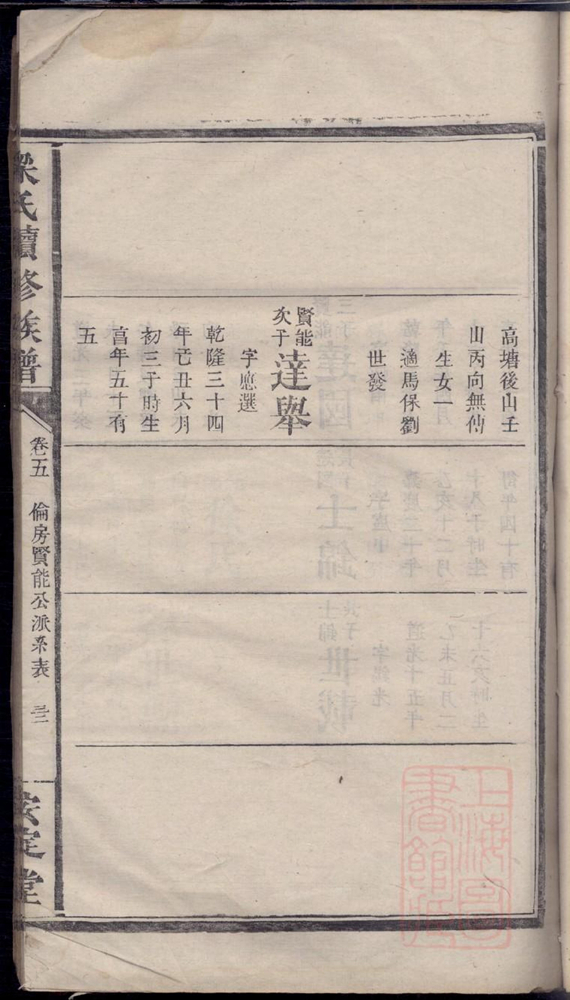 高塘後山壬
山丙向無仙
生女一
適馬保劉
世發
賢能
次子
達舉
字應選
乾隆三十四
年己丑六月
初三子時生
享年五十有
五
氏續修族譜
卷五
倫房賢能公派系表
定堂
上海圖書館藏